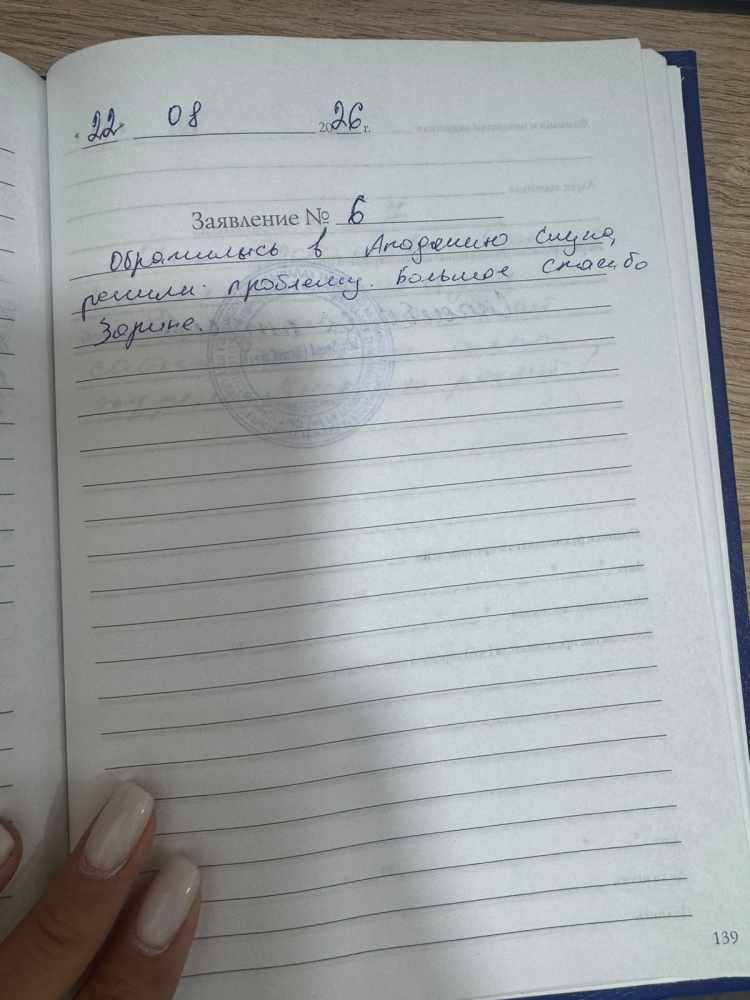 "22" 08 2026 г.
Заявление № 6
Обратились в Академию слуха,
решили проблему. Большое спасибо
Зарине.
139